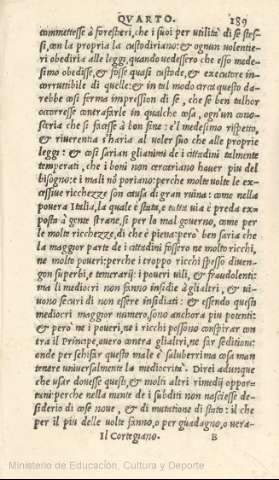 QVARTO. 189
commettesse à forestieri, che i suoi per utilità di se stes-
si, con la propria la custodiriano: & ognun volentie-
ri obediria alle leggi, quando uedessero che esso mede-
simo obedisse, & fosse quasi custode, & executore in-
corruttibile di quelle: & in tal modo circa questo da-
rebbe così ferma impression di se, che se ben talhor
occorresse contrafarle in qualche cosa, ogn'un cono-
sceria che si facesse à bon fine: e'l medesimo rispetto,
& riuerentia s'haria al voler suo che alle proprie
leggi: & così sarian gli animi de i cittadini talmente
temperati, che i boni non cercariano hauer piu del
bisogno: e i mali nõ poriano: perche molte volte le ex-
cessiue ricchezze son causa di gran ruina: come nella
pouera Italia, la quale è stata, e tutta uia è preda ex-
posta à gente strane, sì per lo mal gouerno, come per
le molte ricchezze, di che è piena: però ben saria che
la maggior parte de i cittadini fossero ne molto ricchi,
ne molto poueri: perche i troppo ricchi spesso diuen-
gon superbi, e temerarij: i poueri uili, & fraudolenti:
ma li mediocri non fanno insidie à gli altri, & ui-
uono securi di non essere insidiati: & essendo questi
mediocri maggior numero, sono anchora piu potenti:
& però ne i poueri, ne i ricchi possono conspirar con-
tra il Principe, ouero contra gli altri, ne far seditioni:
onde per schifar questo male è saluberrima cosa man
tenere uniuersalmente la mediocrità. Direi adunque
che usar douesse questi, & molti altri rimedij oppor-
tuni: perche nella mente de i subditi non nascesse de-
siderio di cose noue, & di mutatione di stato: il che
per il piu delle volte fanno, o per guadagno, o uera-
Il Cortegiano. B
Ministerio de Educación, Cultura y Deporte